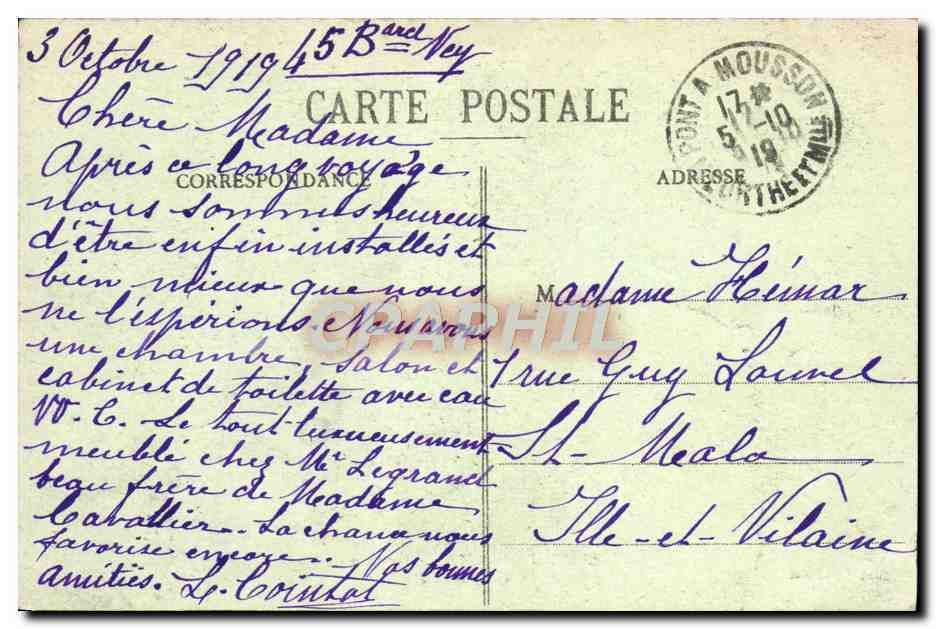 3 Octobre 1919 45 Bard Ney
CARTE POSTALE
Chère Madame
Après ce long voyage
CORRESPONDANCE
nous sommes heureux
d'être enfin installés et
bien mieux que nous
ne l'espérions. Nous avons
une chambre, salon et
cabinet de toilette avec eau
W. C. Le tout luxueusement
meublé chez Mr Legrand
beau frère de Madame
Cavallier. La chance nous
favorise encore. Nos bonnes
amitiés. L. Cointot
PONT A MOUSSON
17 *
5 -10
19
MEURTHE ET Mlle
ADRESSE
Madame Hémar
1 rue Guy Louvel
St-Malo
Ille-et-Vilaine
CPAPHIL